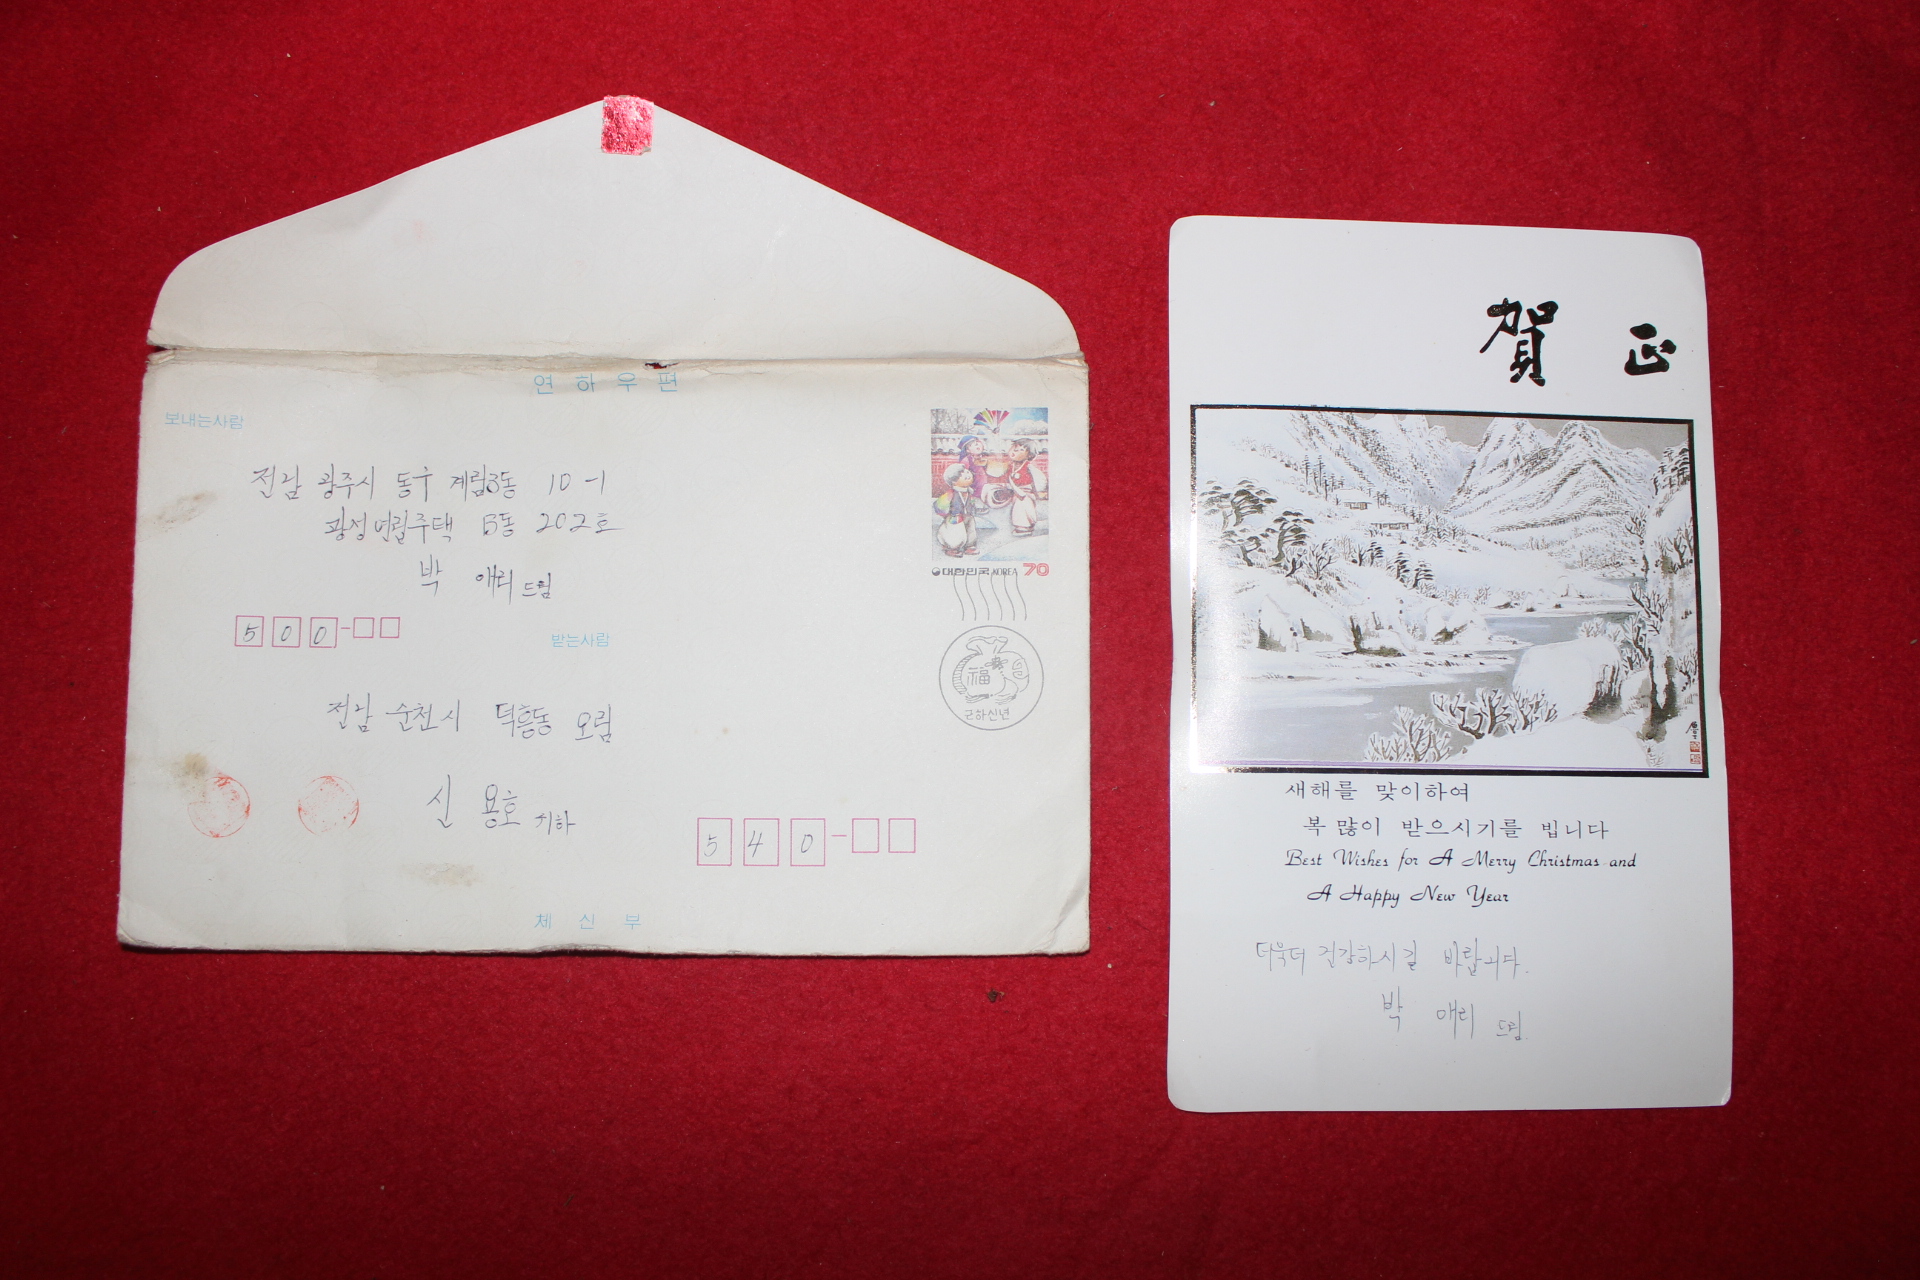 연하우편
보내는사람
전남 광주시 동구 계림3동 10-1
광성연립주택 B동 202호
박 애리 드림
500-
대한민국 KOREA 70
福
근하신년
받는사람
전남 순천시 덕흥동 오림
신 용호 귀하
540-
체신부
賀 正
새해를 맞이하여
복 많이 받으시기를 빕니다
Best Wishes for A Merry Christmas and
A Happy New Year
더욱더 건강하시길 바랍니다.
박 애리 드림